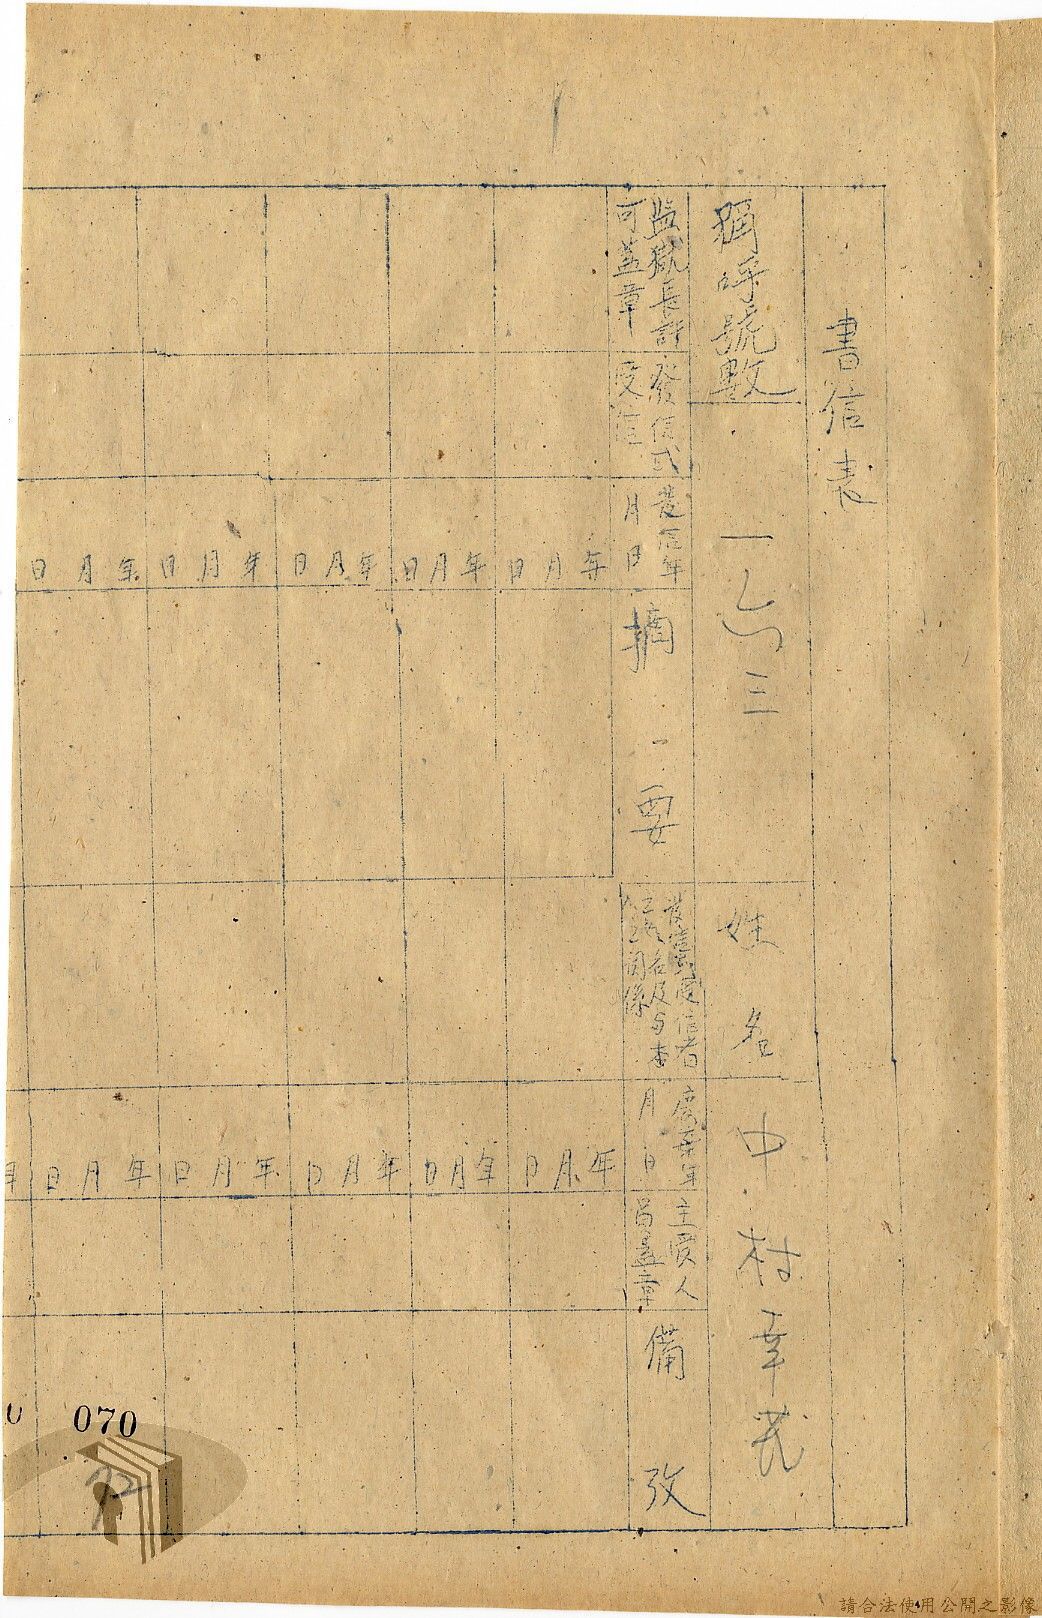 書信表
稱呼號數 一六三 姓名 中村幸茂
監獄長許
可蓋章
發信或
受信
發信年
月日
摘要
發信或受信者
姓名及与本
人之關係
處辛年
月日
主受人
員蓋章
備攷
年月日 年月日 年月日 年月日 年月日
年月日 年月日 年月日 年月日 年月日 年
070
72
請合法使用公開之影像